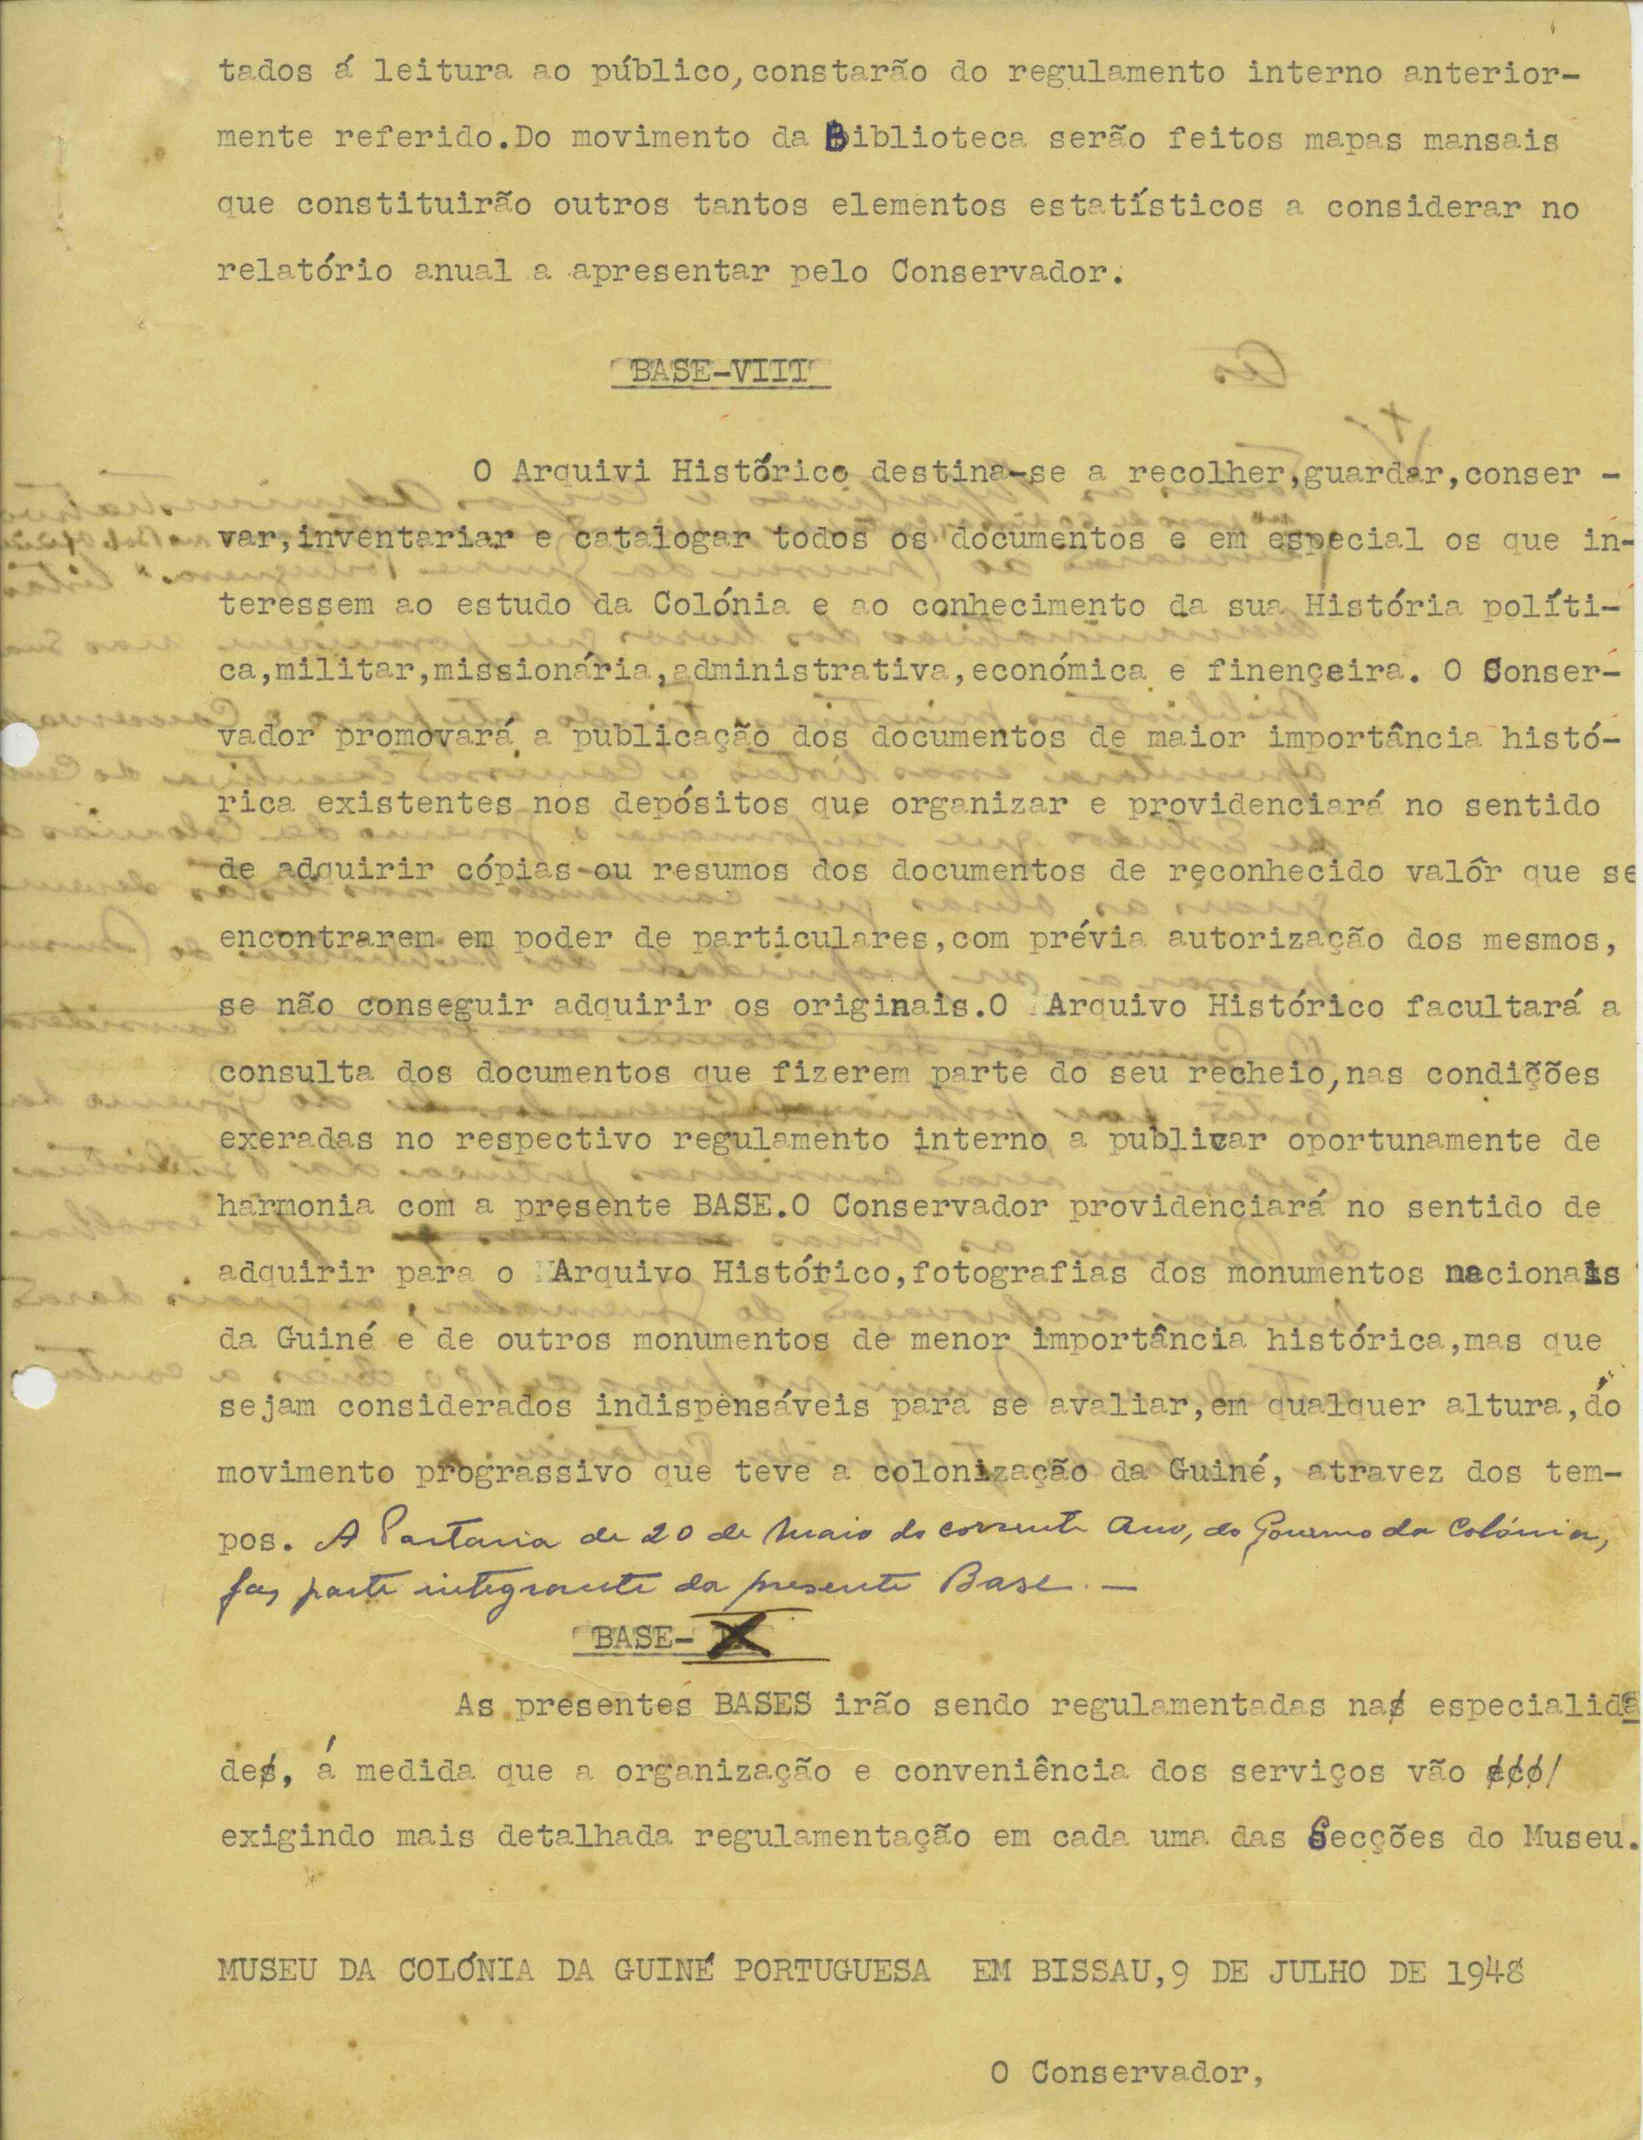 tados á leitura ao público,constarão do regulamento interno anterior-
mente referido.Do movimento da Biblioteca serão feitos mapas mansais
que constituirão outros tantos elementos estatísticos a considerar no
relatório anual a apresentar pelo Conservador.
BASE-VIII
O Arquivi Histórico destina-se a recolher,guardar,conser -
var,inventariar e catalogar todos os documentos e em especial os que in-
teressem ao estudo da Colónia e ao conhecimento da sua História políti-
ca,militar,missionária,administrativa,económica e finençeira. O Conser-
vador promovará a publicação dos documentos de maior importância histó-
rica existentes nos depósitos que organizar e providenciará no sentido
de adquirir cópias ou resumos dos documentos de reconhecido valôr que se
encontrarem em poder de particulares,com prévia autorização dos mesmos,
se não conseguir adquirir os originais.O Arquivo Histórico facultará a
consulta dos documentos que fizerem parte do seu recheio,nas condições
exeradas no respectivo regulamento interno a publicar oportunamente de
harmonia com a presente BASE.O Conservador providenciará no sentido de
adquirir para o Arquivo Histórico,fotografias dos monumentos nacionais
da Guiné e de outros monumentos de menor importância histórica,mas que
sejam considerados indispensáveis para se avaliar,em qualquer altura,do
movimento prograssivo que teve a colonização da Guiné, atravez dos tem-
pos. A Portaria de 20 de Maio do corrente ano, do Governo da Colónia,
faz parte integrante da presente Base. —
BASE- X
As presentes BASES irão sendo regulamentadas na especialida
de, á medida que a organização e conveniência dos serviços vão
exigindo mais detalhada regulamentação em cada uma das Secções do Museu.
MUSEU DA COLÓNIA DA GUINÉ PORTUGUESA EM BISSAU,9 DE JULHO DE 1948
O Conservador,